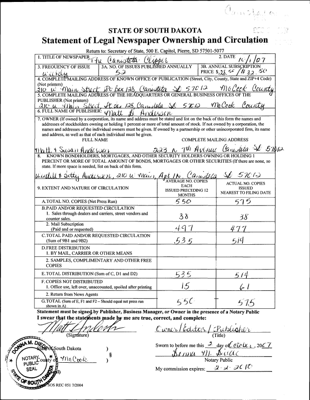 STATE OF SOUTH DAKOTA
Statement of Legal Newspaper Ownership and Circulation
Return to: Secretary of State, 500 E. Capitol, Pierre, SD 57501-5077
1. TITLE OF NEWSPAPER The Canistota Clipper
2. DATE 10/1/07
3. FREQUENCY OF ISSUE Weekly
3A. NO. OF ISSUES PUBLISHED ANNUALLY 52
3B. ANNUAL SUBSCRIPTION PRICE
4. COMPLETE MAILING ADDRESS OF KNOWN OFFICE OF PUBLICATION (Street, City, County, State and ZIP+4 Code) (Not printers)
210 W Main Street PO Box 128, Canistota SD 57012 McCook County
5. COMPLETE MAILING ADDRESS OF THE HEADQUARTERS OF GENERAL BUSINESS OFFICES OF THE PUBLISHER (Not printer)
210 W Main Street PO Box 128, Canistota SD 57012 McCook County
6. FULL NAME OF PUBLISHER: Matt B Anderson
7. OWNER (If owned by a corporation, its name and address must be stated and list on the back of this form the names and
addresses of stockholders owning or holding 1 percent or more of total amount of stock. If not owned by a corporation, the
names and addresses of the individual owners must be given. If owned by a partnership or other unincorporated firm, its name
and address, as well as that of each individual must be given.
FULL NAME COMPLETE MAILING ADDRESS
Matt & Anderson Canistota SD 57012
8. KNOWN BONDHOLDERS, MORTGAGES, AND OTHER SECURITY HOLDERS OWNING OR HOLDING 1
PERCENT OR MORE OF TOTAL AMOUNT OF BONDS, MORTGAGES OR OTHER SECURITIES (If there are none, so
state. If more space is needed, list on back of this form.
& Betty Anderson, 210 W Main, Canistota SD 57012
9. EXTENT AND NATURE OF CIRCULATION
AVERAGE NO. COPIES EACH ISSUE PRECEDING 12 MONTHS
ACTUAL NO. COPIES ISSUED NEAREST TO FILING DATE
A. TOTAL NO. COPIES (Net Press Run) 550 575
B. PAID AND/OR REQUESTED CIRCULATION
1. Sales through dealers and carriers, street vendors and counter sales. 38 38
2. Mail Subscription (Paid and or requested) 497 477
C. TOTAL PAID AND/OR REQUESTED CIRCULATION (Sum of 9B1 and 9B2) 535 514
D. FREE DISTRIBUTION
1. BY MAIL, CARRIER OR OTHER MEANS
2. SAMPLES, COMPLIMENTARY AND OTHER FREE COPIES
E. TOTAL DISTRIBUTION (Sum of C, D1 and D2) 535 514
F. COPIES NOT DISTRIBUTED
1. Office use, left over, unaccounted, spoiled after printing 15 61
2. Return from News Agents
G. TOTAL (Sum of E, F1 and F2 - Should equal net press run shown in A) 550 575
Statement must be signed by Publisher, Business Manager, or Owner in the presence of a Notary Public
I swear that the statements made by me are true, correct, and complete:
Matt Anderson
(Signature)
Publisher
(Title)
State of South Dakota )
County of McCook ) §
Sworn to before me this 2 day of October, 2007
Donna M.
Notary Public
My commission expires:
NOTARY
PUBLIC
SEAL
SOS REC 051 7/2004